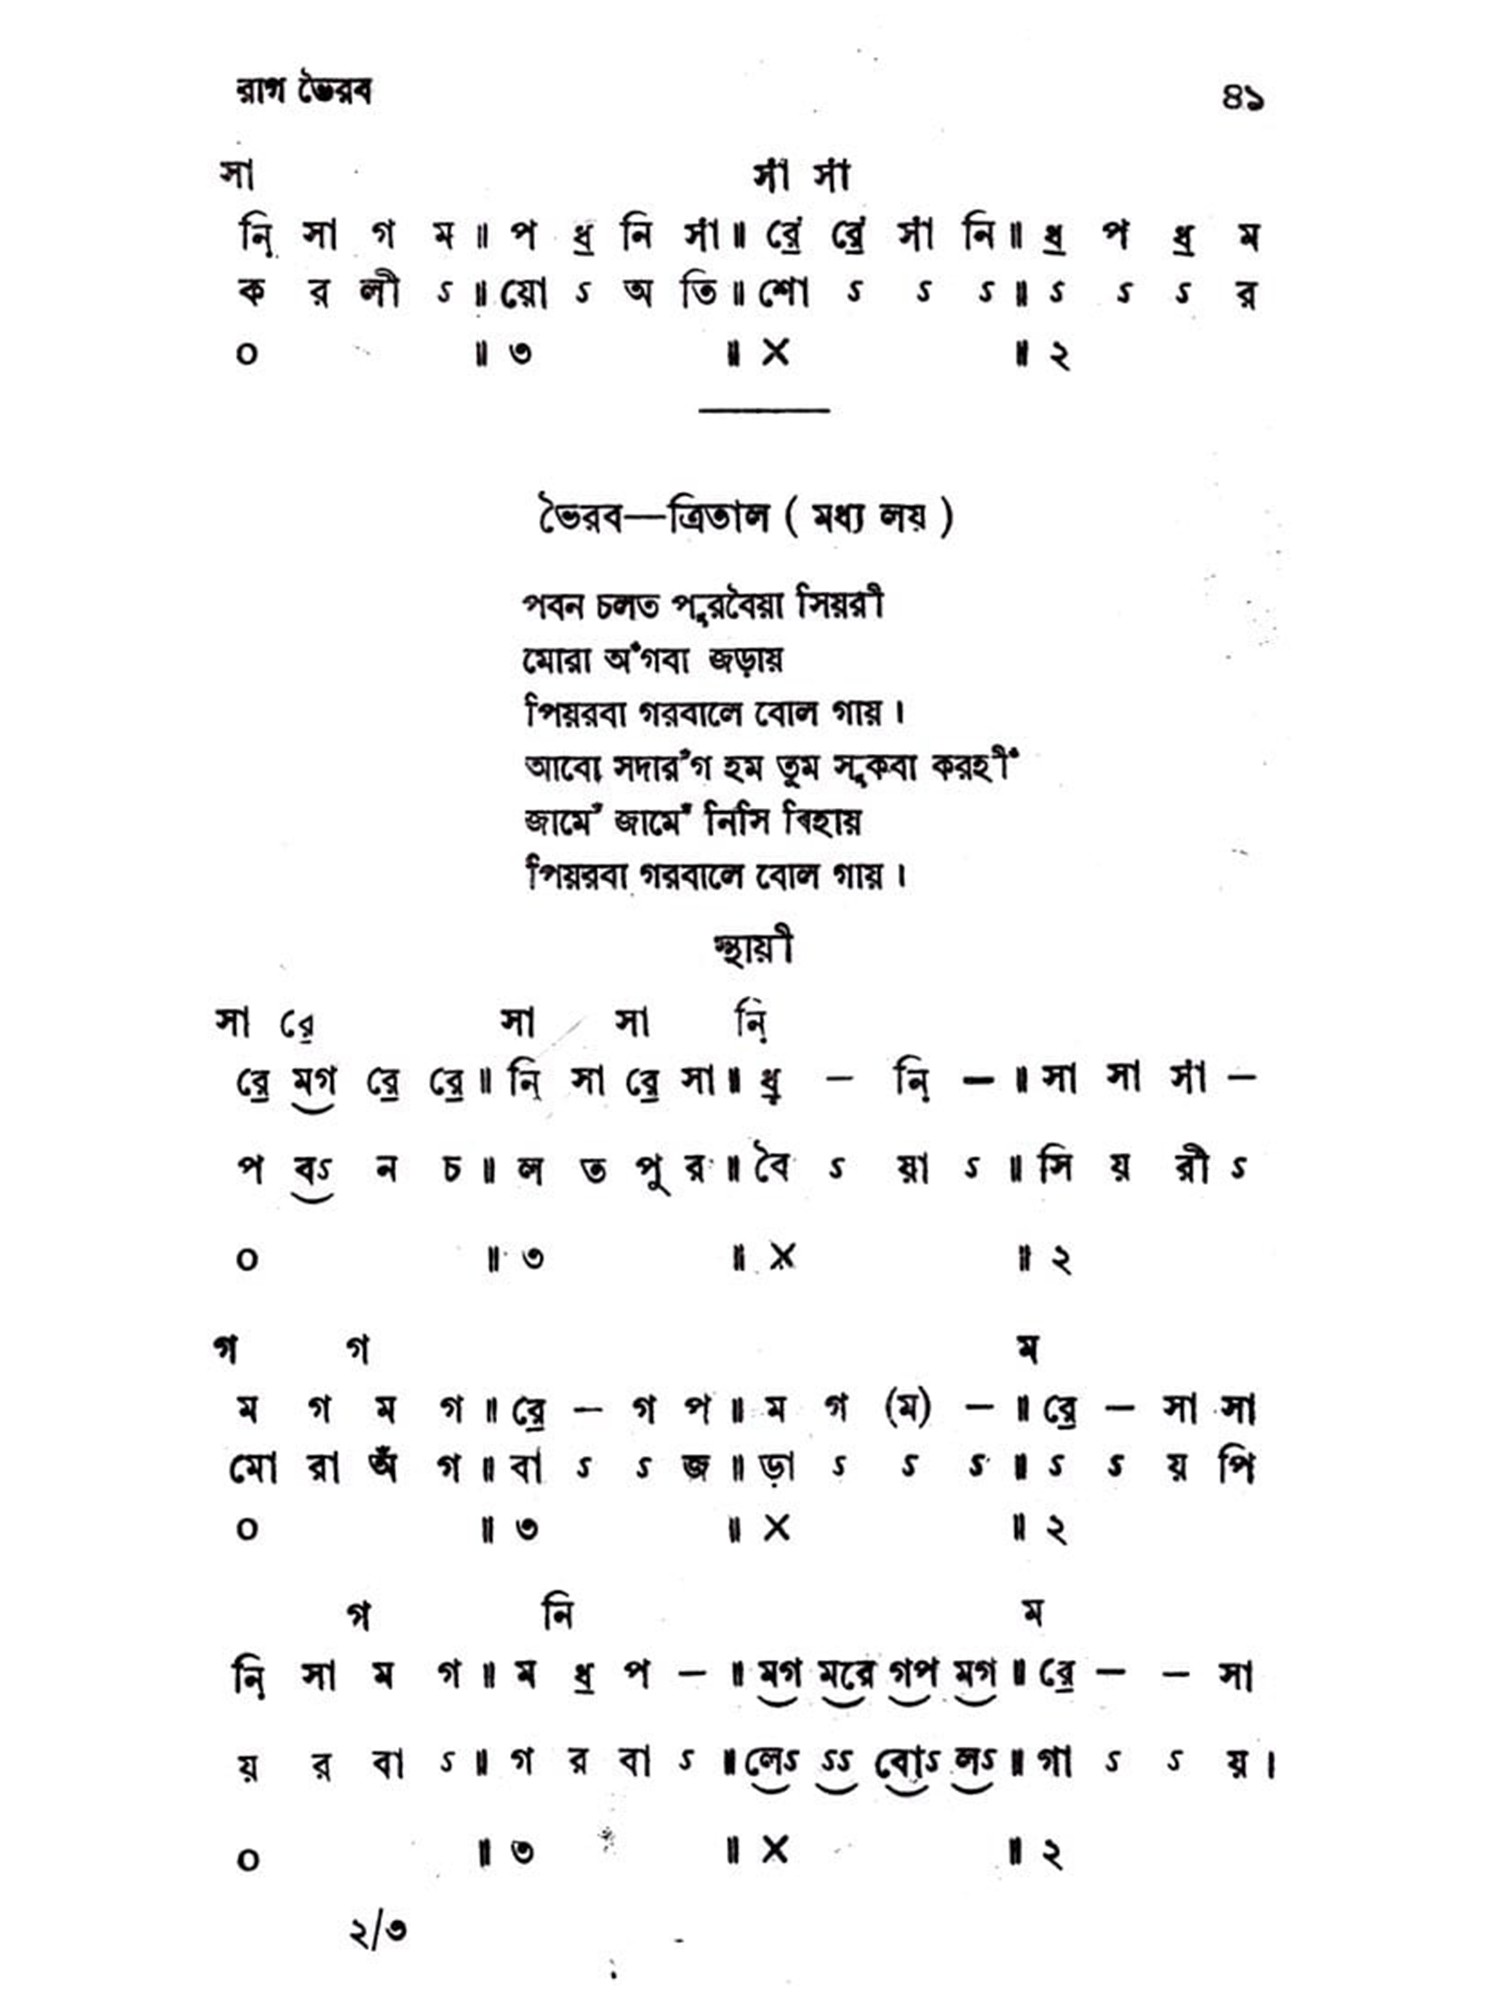 রাগ ভৈরব ৪১
সা র্সা র্সা
নি় সা গ ম ॥ প ধ॒ নি র্সা ॥ রে॒ং রে॒ং র্সা নি ॥ ধ॒ প ধ॒ ম
ক র লী ऽ ॥ য়ো ऽ অ তি ॥ শো ऽ ऽ ऽ ॥ ऽ ऽ ऽ র
০ ॥ ৩ ॥ × ॥ ২
ভৈরব—ত্রিতাল ( মধ্য লয় )
পবন চলত পুরবৈয়া সিয়রী
মোরা অঁগবা জড়ায়
পিয়রবা গরবালে বোল গায় ।
আবো সদারঁগ হম তুম সুকবা করহীঁ
জামেঁ জামেঁ নিসি বিহায়
পিয়রবা গরবালে বোল গায় ।
স্থায়ী
সা রে॒ সা সা নি়
রে॒ মগ রে॒ রে॒ ॥ নি় সা রে॒ সা ॥ ধ়॒ – নি় – ॥ সা সা সা –
প বऽ ন চ ॥ ল ত পু র ॥ বৈ ऽ য়া ऽ ॥ সি য় রী ऽ
০ ॥ ৩ ॥ × ॥ ২
গ গ ম
ম গ ম গ ॥ রে॒ – গ প ॥ ম গ (ম) – ॥ রে॒ – সা সা
মো রা অঁ গ ॥ বা ऽ ऽ জ ॥ ড়া ऽ ऽ ऽ ॥ ऽ ऽ য় পি
০ ॥ ৩ ॥ × ॥ ২
গ নি ম
নি় সা ম গ ॥ ম ধ॒ প – ॥ মগ মরে গপ মগ ॥ রে॒ – – সা
য় র বা ऽ ॥ গ র বা ऽ ॥ লেऽ ऽऽ বোऽ লऽ ॥ গা ऽ ऽ য় ।
০ ॥ ৩ ॥ × ॥ ২
২/৩